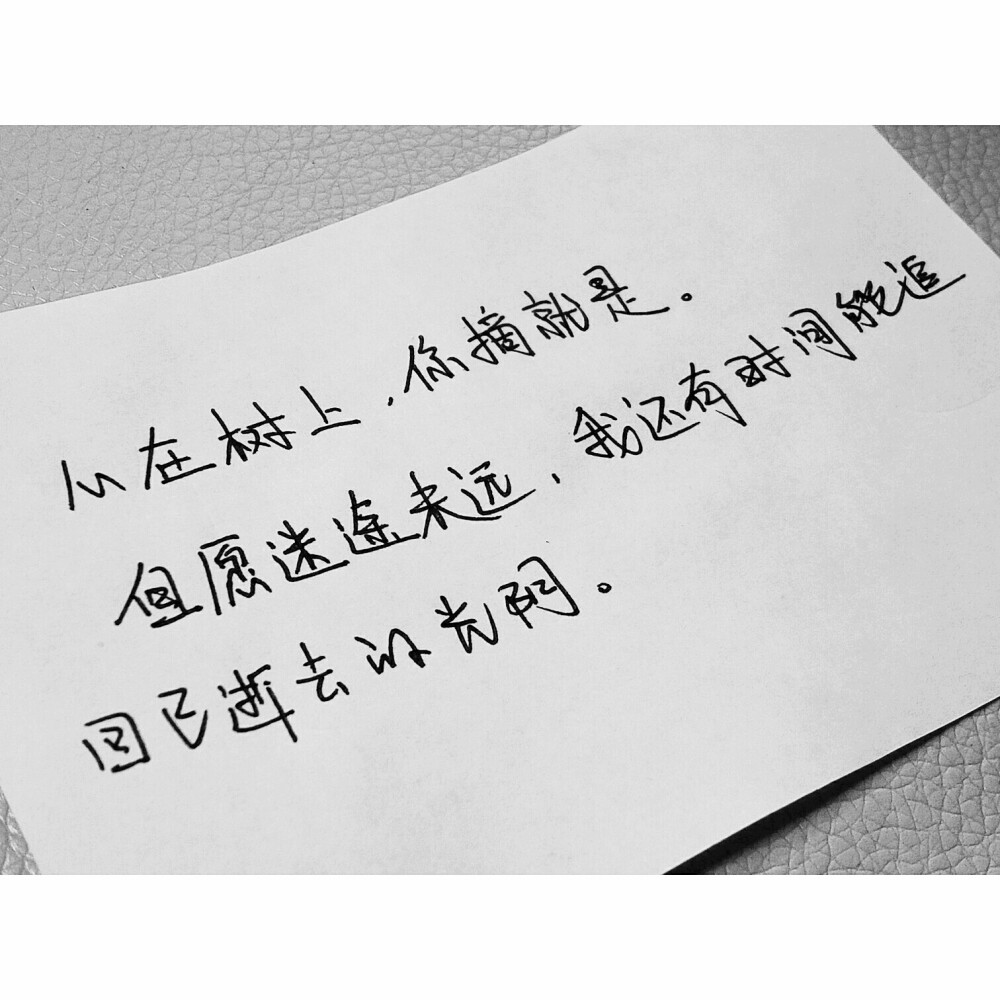 从在树上,你摘就是。
但愿迷途未远,我还有时间能追
回已逝去的光阴。